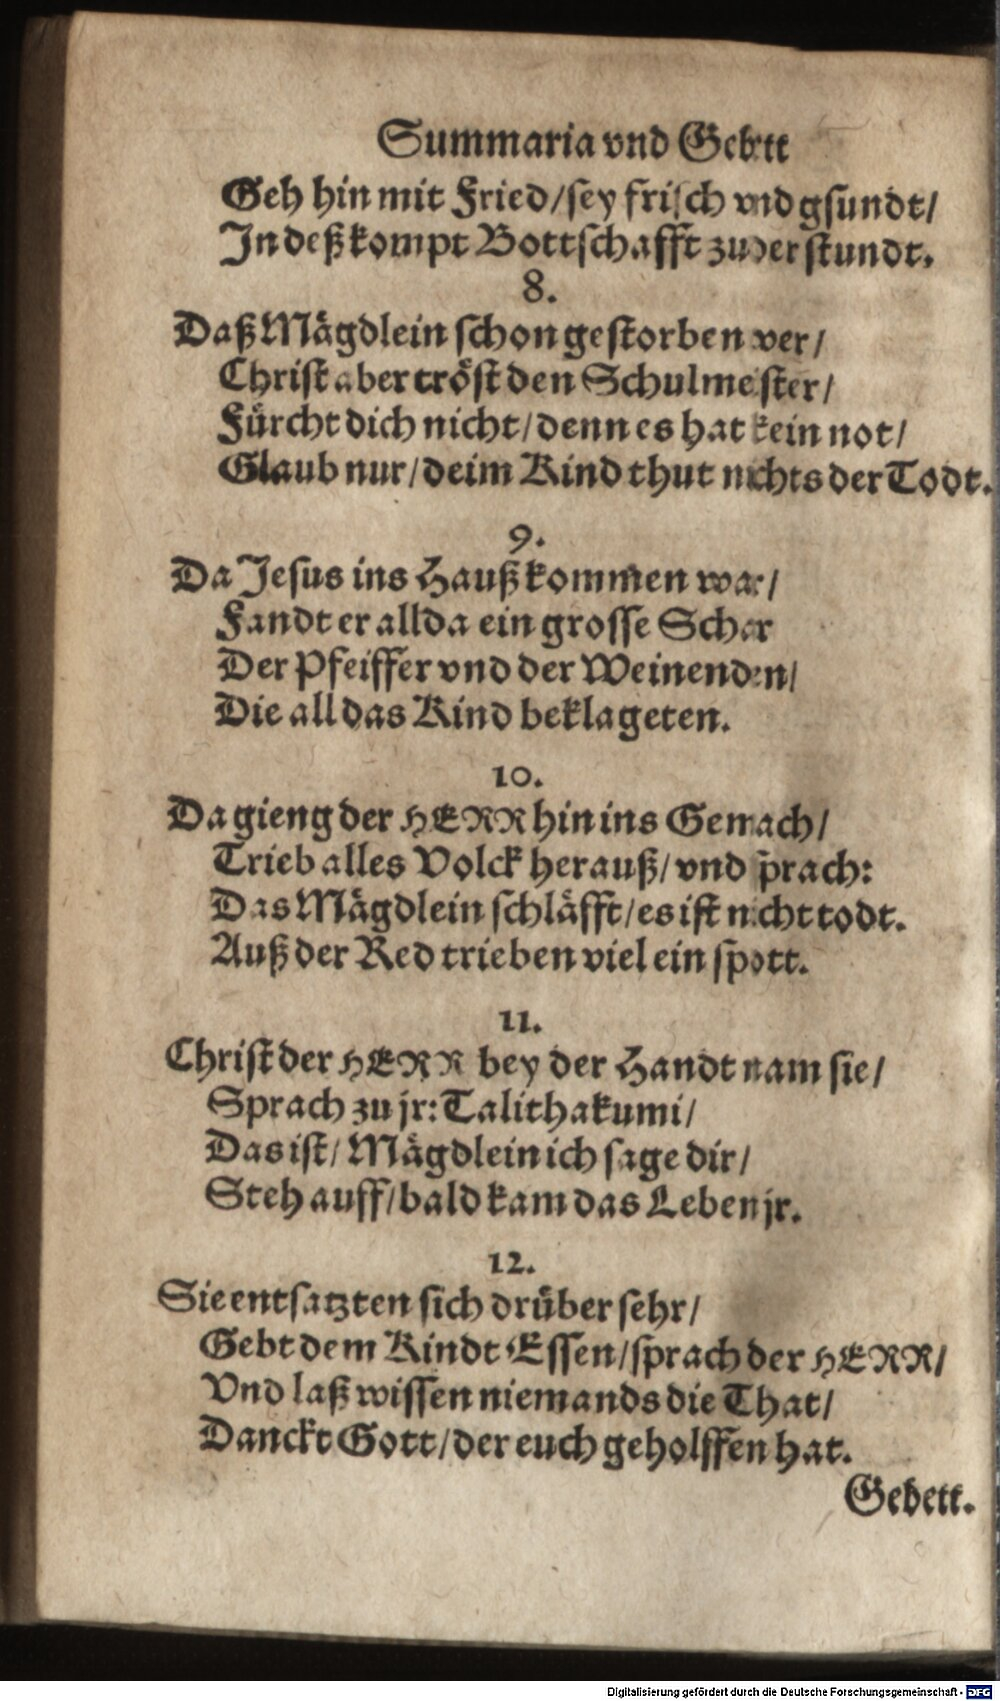 Summaria vnd Gebett
Geh hin mit Fried/sey frisch vnd gsundt/
In deß kompt Bottschafft zu der stundt.
8.
Daß Mägdlein schon gestorben wer/
Christ aber tröst den Schulmeister/
Fürcht dich nicht/denn es hat kein not/
Glaub nur/deim Kind thut nichts der Todt.
9.
Da Jesus ins Hauß kommen war/
Fandt er allda ein grosse Schar
Der Pfeiffer vnd der Weinenden/
Die all das Kind beklageten.
10.
Da gieng der HERR hin ins Gemach/
Trieb alles Volck herauß/vnd sprach:
Das Mägdlein schläfft/es ist nicht todt.
Auß der Red trieben viel ein spott.
11.
Christ der HERR bey der Handt nam sie/
Sprach zu jr: Talitha kumi/
Das ist/Mägdlein ich sage dir/
Steh auff/bald kam das Leben jr.
12.
Sie entsatzten sich drüber sehr/
Gebt dem Kindt Essen/sprach der HERR/
Vnd laß wissen niemands die That/
Danckt Gott/der euch geholffen hat.
Gebett.
Digitalisierung gefördert durch die Deutsche Forschungsgemeinschaft - DFG